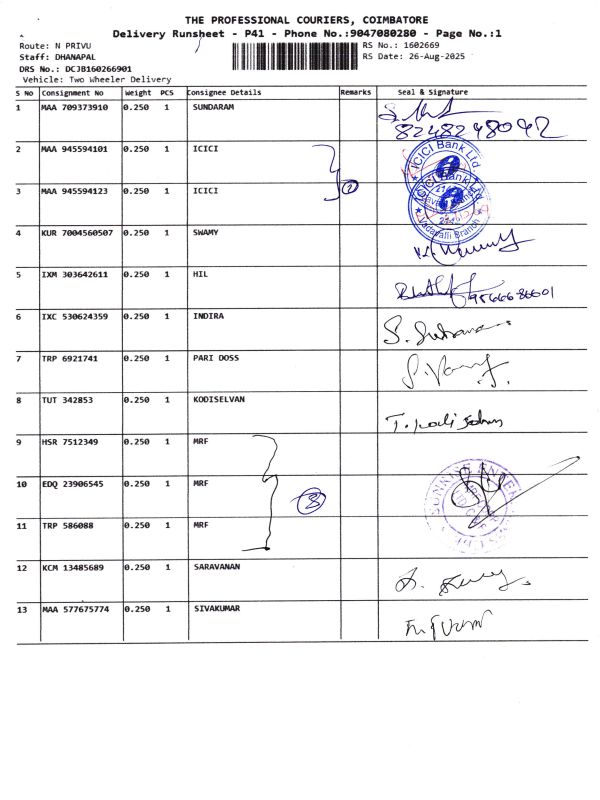 THE PROFESSIONAL COURIERS, COIMBATORE
Delivery Runsheet - P41 - Phone No.:9047080280 - Page No.:1
Route: N PRIVU
RS No.: 1602669
Staff: DHANAPAL
RS Date: 26-Aug-2025
DRS No.: DCJB160266901
Vehicle: Two Wheeler Delivery
S No Consignment No Weight PCS Consignee Details Remarks Seal & Signature
1 MAA 709373910 0.250 1 SUNDARAM
2 MAA 945594101 0.250 1 ICICI ICICI Bank Ltd
3 MAA 945594123 0.250 1 ICICI ICICI Bank Ltd. Vadavalli Branch
4 KUR 7004560507 0.250 1 SWAMY
5 IXM 303642611 0.250 1 HIL
6 IXC 530624359 0.250 1 INDIRA
7 TRP 6921741 0.250 1 PARI DOSS
8 TUT 342853 0.250 1 KODISELVAN
9 HSR 7512349 0.250 1 MRF
10 EDQ 23906545 0.250 1 MRF
11 TRP 586088 0.250 1 MRF
12 KCM 13485689 0.250 1 SARAVANAN
13 MAA 577675774 0.250 1 SIVAKUMAR